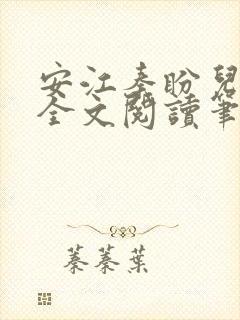 安江秦盼兒
全文閱讀筆
蓁蓁葉